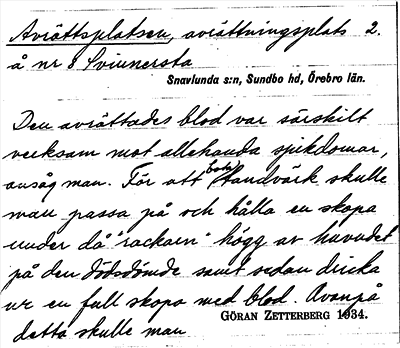 Avrättsplatsen, avrättningsplats 2.
å nr 8 Svinnersta
Snavlunda s:n, Sundbo hd, Örebro län.
Den avrättades blod var särskilt
verksam mot allehanda sjukdomar,
ansåg man. För att bota tandvärk skulle
man passa på och hålla en skopa
under då "rackarn" högg av huvudet
på den dödsdömde samt sedan dricka
ur en full skopa med blod. Ovanpå
detta skulle man
GÖRAN ZETTERBERG 1934.